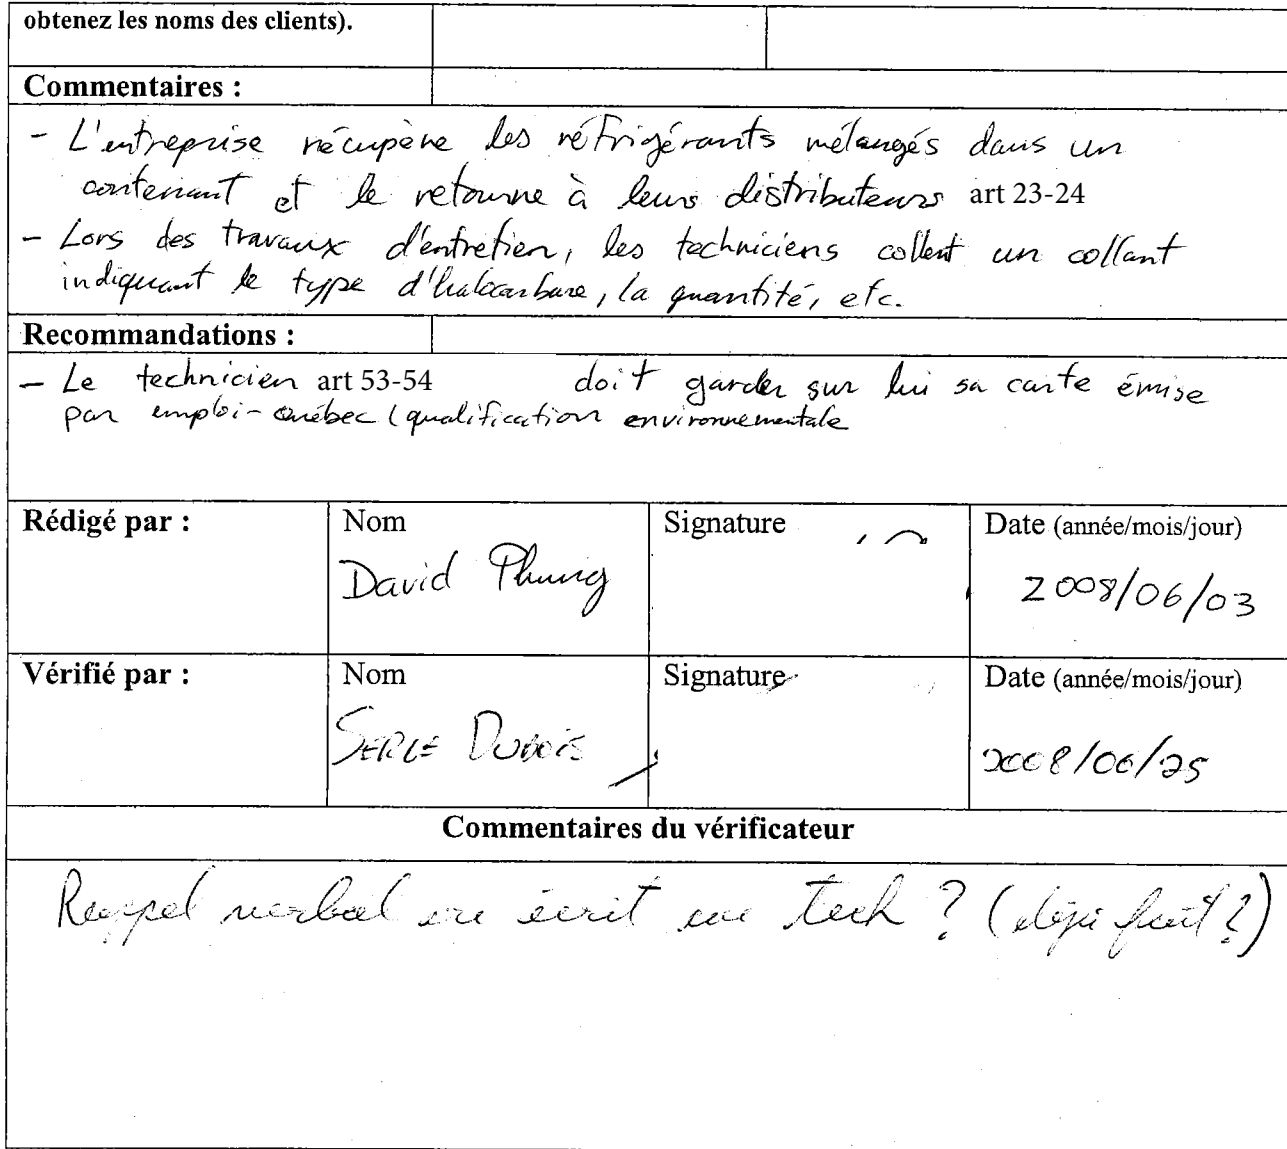 obtenez les noms des clients).
Commentaires :
- L'entreprise récupère les réfrigérants mélangés dans un
contenant et le retourne à leurs distributeurs art 23-24
- Lors des travaux d'entretien, les techniciens collent un collant
indiquant le type d'halocarbure, la quantité, etc.
Recommandations :
- Le technicien art 53-54 doit garder sur lui sa carte émise
par emploi-Québec (qualification environnementale
Rédigé par :
Nom
Signature
Date (année/mois/jour)
David Phung
2008/06/03
Vérifié par :
Nom
Signature
Date (année/mois/jour)
SERGE DUBOIS
2008/06/25
Commentaires du vérificateur
Rappel verbal ou écrit au tech ? (déjà fait ?)